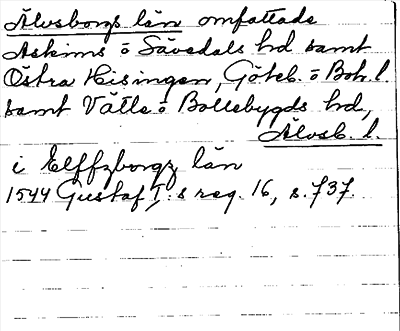 Älvsborgs län omfattade
Askims ö Sävedals hd samt
Östra Hisingen, Göteb. ö Boh. l.
samt Vätle ö Bollebygds hd,
Älvsb. l.
i Elffzborgz län
1544 Gustaf I:s reg. 16, s. 737.